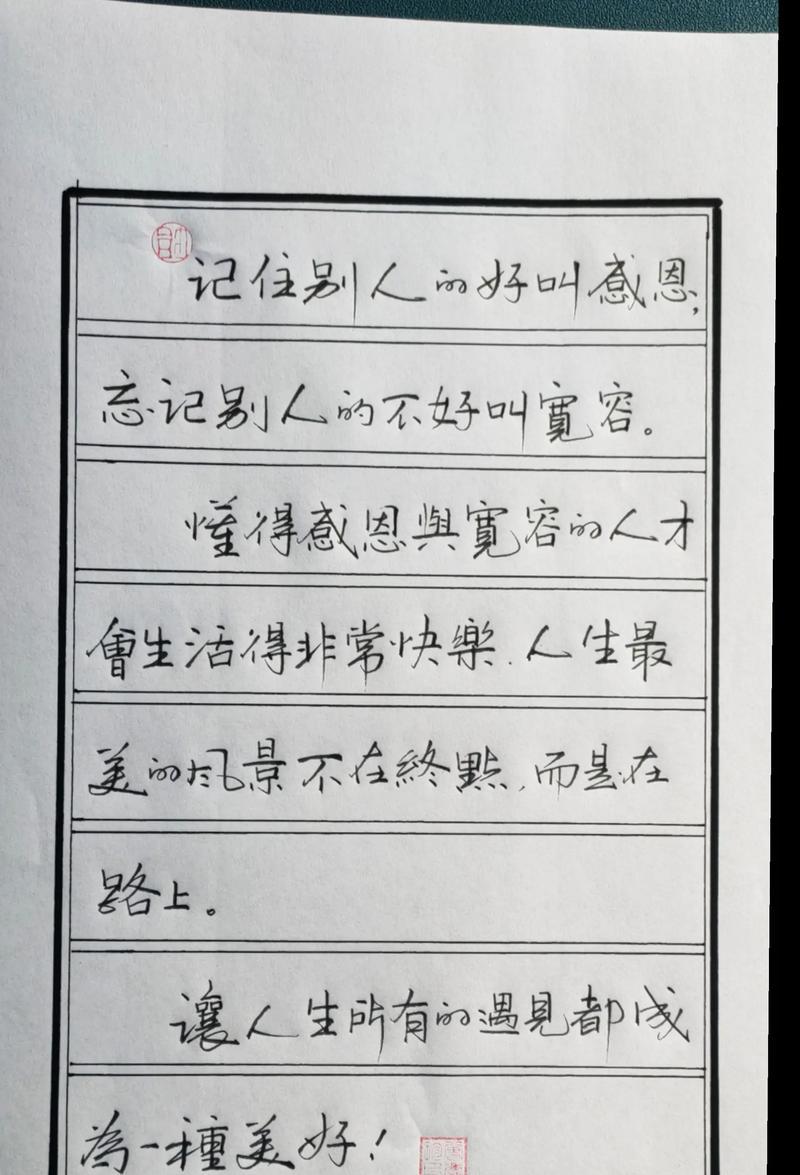 记住别人的好叫感恩,
忘记别人的不好叫寬容。
懂得感恩與寬容的人才
會生活得非常快樂.人生最
美的风景不在終點,而是在
路上。
讓人生所有的遇見都成
為一種美好!